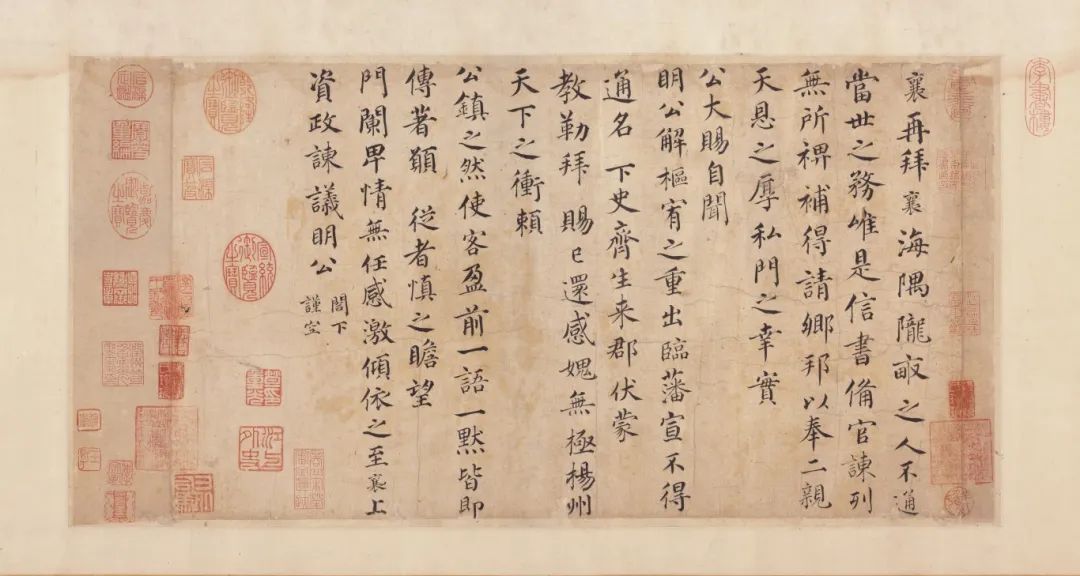 李書樓
襄再拜襄海隅隴畝之人不通
當世之務唯是信書備官諫列
無所裨補得請鄉邦以奉二親
天恩之厚私門之幸實
公大賜自聞
明公解樞宥之重出臨藩宣不得
通名 下史齊生来郡伏蒙
教勒拜 賜已還感媿無極楊州
天下之衝賴
公鎮之然使客盈前一語一默皆即
傳著願 從者慎之瞻望
門闌卑情無任感激傾依之至襄上
資政諫議明公
閤下
謹空
宣統御覽之寶
石渠寶笈
嘉慶御覽之寶